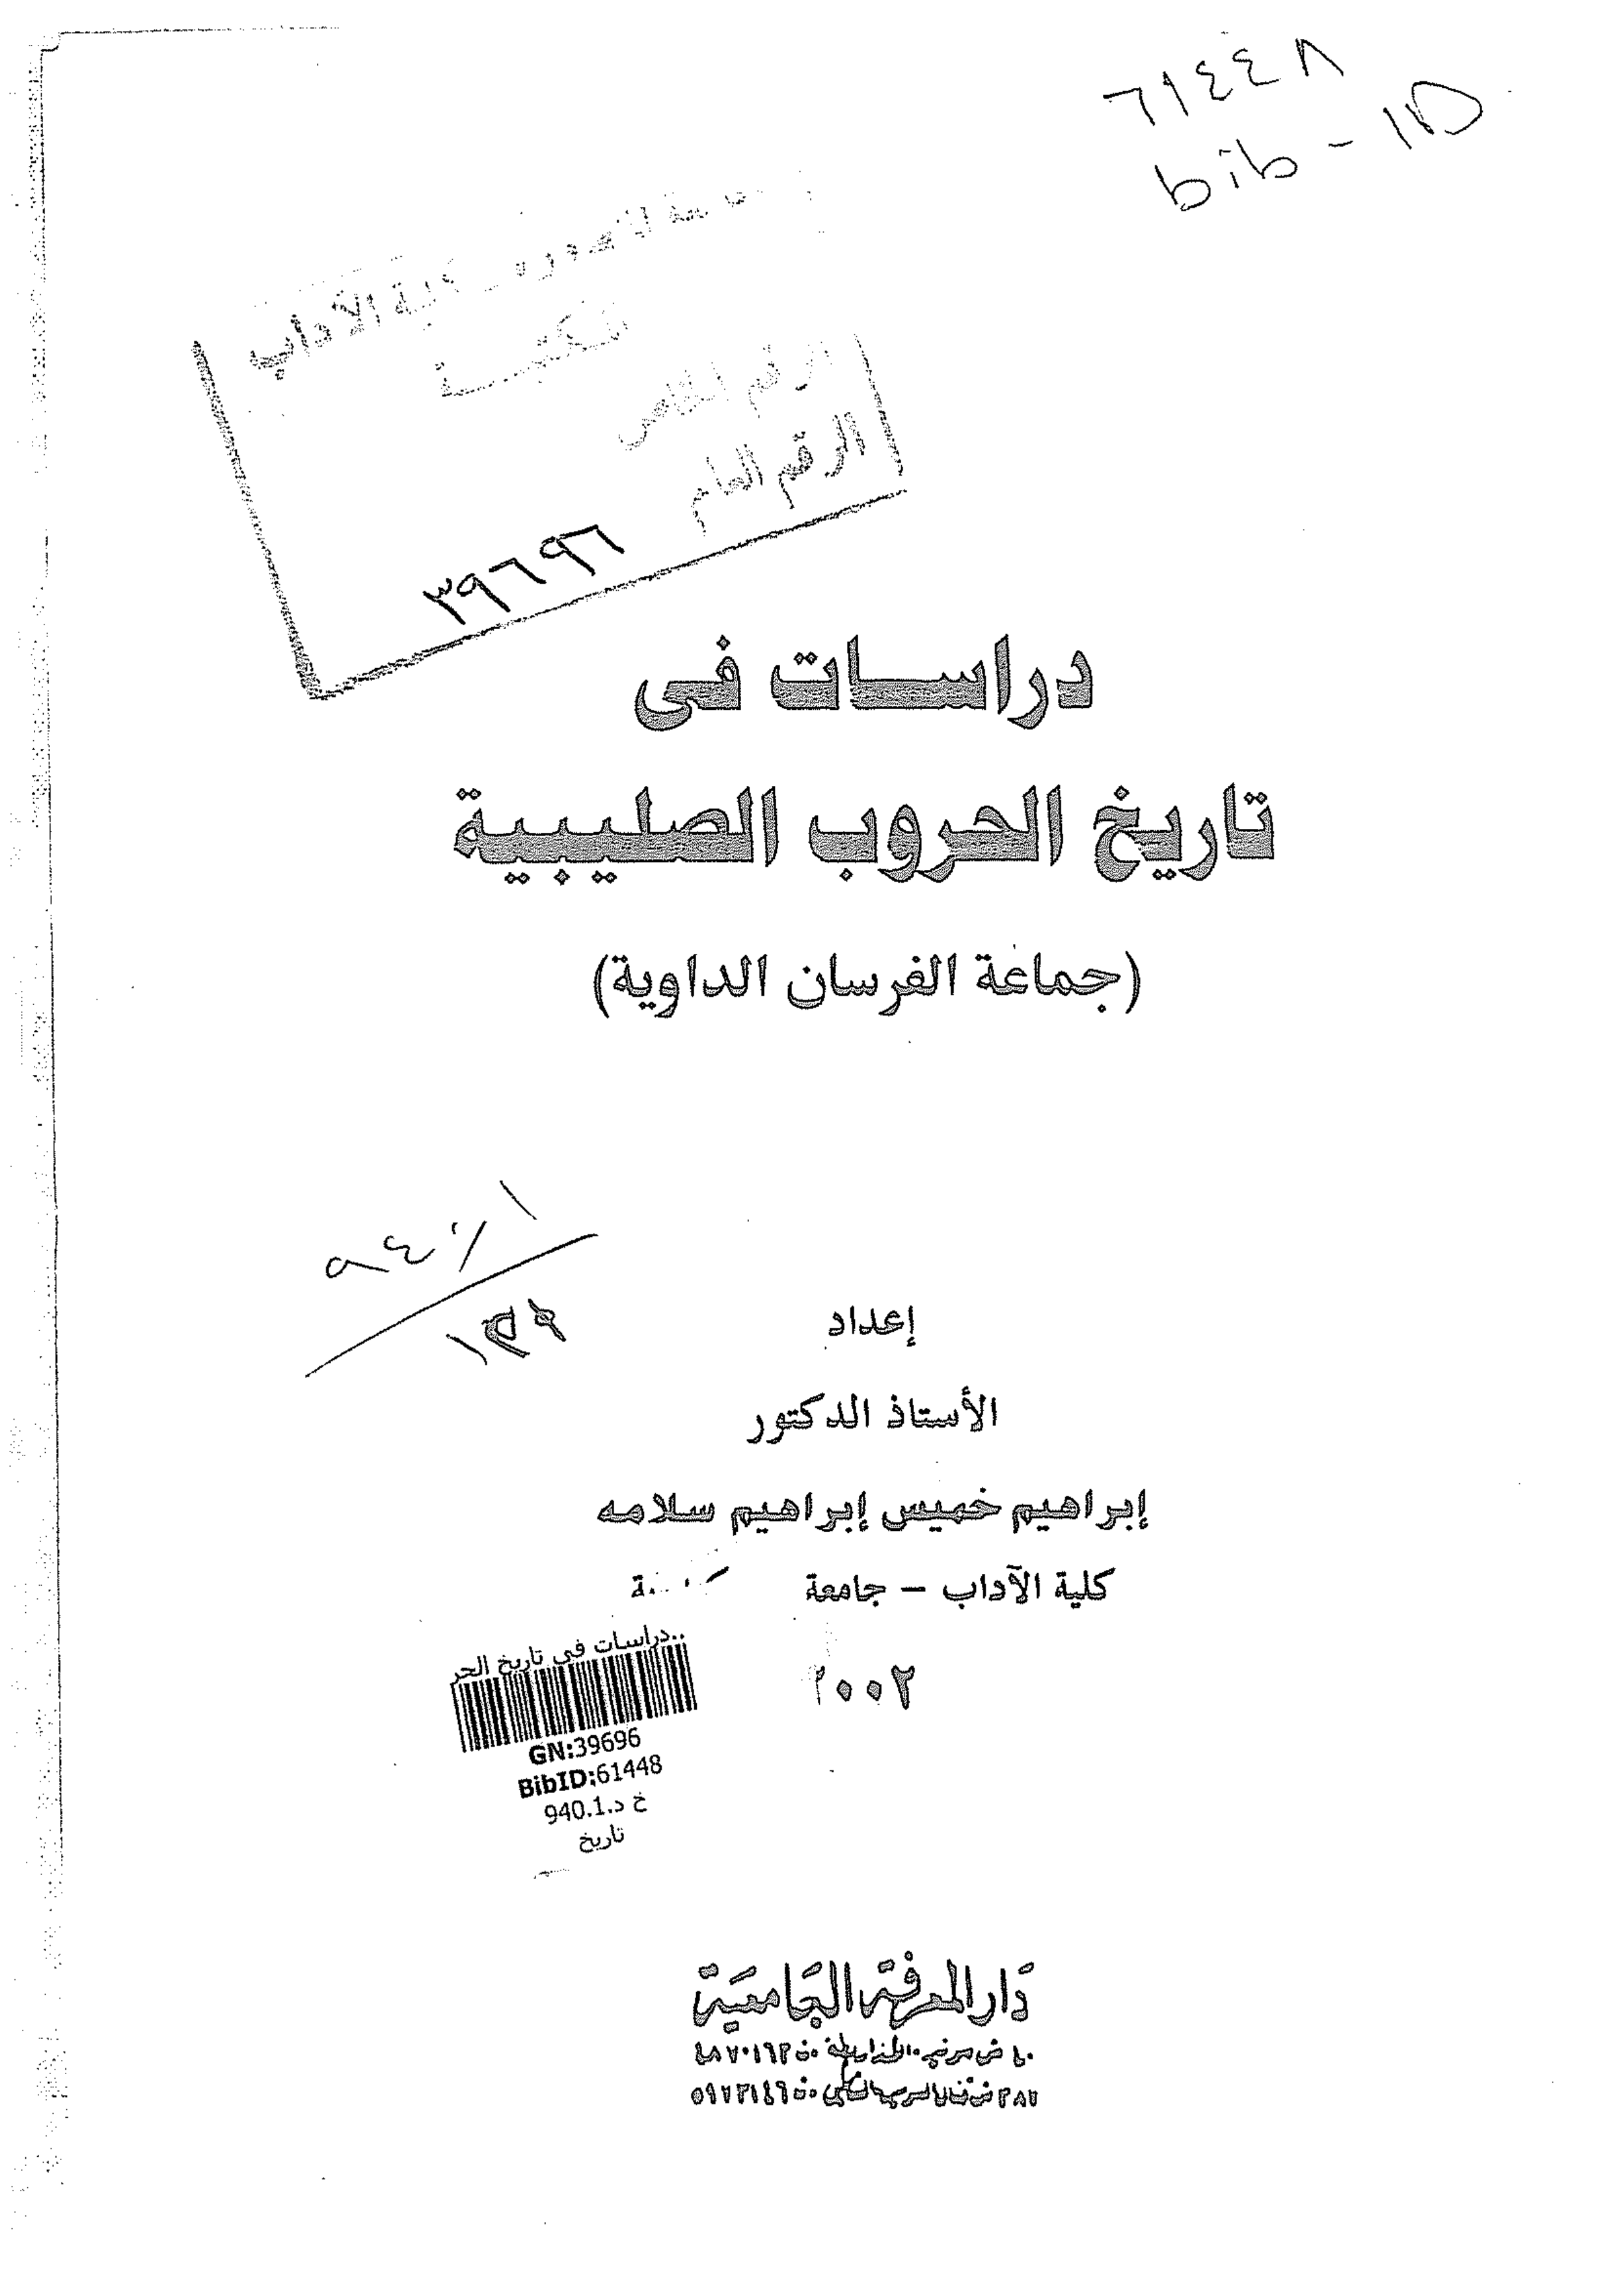 ٦١٤٤٨
bib - ID
كلية الآداب
مكتبة
الرقم الخاص
الرقم العام
٣٩٦٩٦
دراسات فى
تاريخ الحروب الصليبية
(جماعة الفرسان الداوية)
٩٤٠٫١
إعداد
الأستاذ الدكتور
إبراهيم خميس إبراهيم سلامه
كلية الآداب – جامعة
٢٠٠٢
دراسات في تاريخ الحر..
GN:39696
BibID:61448
940.1.خ د
تاريخ
دار المعرفة الجامعية
٤٠ ش سوتير - الأزاريطة - ت ٤٨٧٠١٦٣
٣٨٧ ش قنال السويس - الشاطبي - ت ٥٩٧٣١٤٦